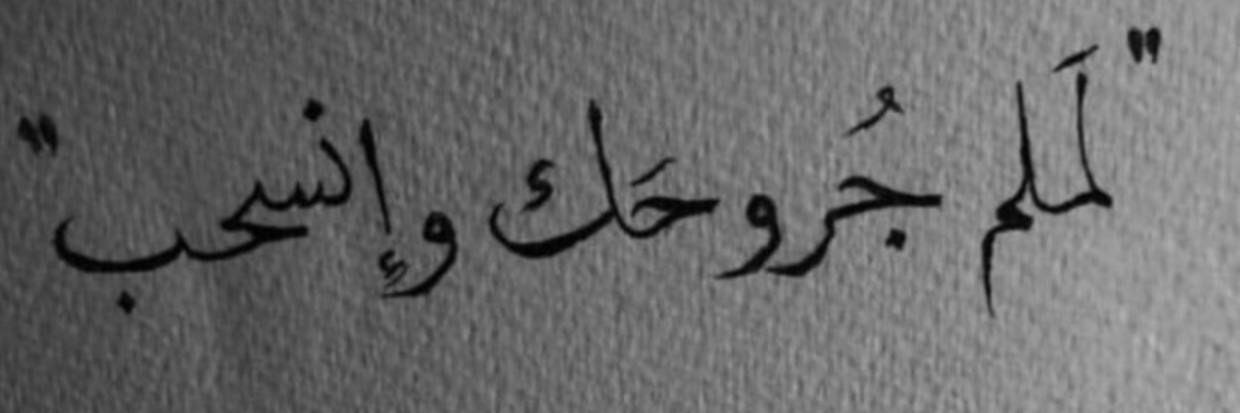 "لَملم جُروحَك وإنسحب"